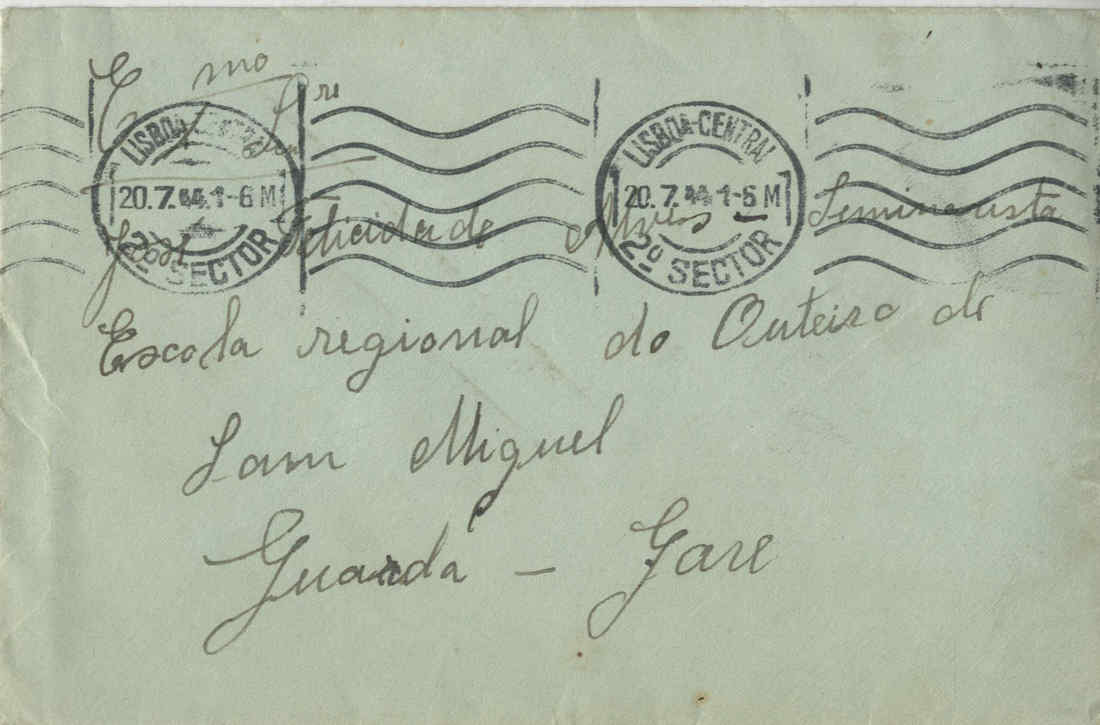 Ex mo Snr
LISBOA-CENTRAL
20.7.44.1-6 M
2º SECTOR
LISBOA-CENTRAL
20.7.44.1-6 M
2º SECTOR
José Felicidade Alves - Seminarista
Escola regional do Outeiro de
Sam Miguel
Guarda - Gare